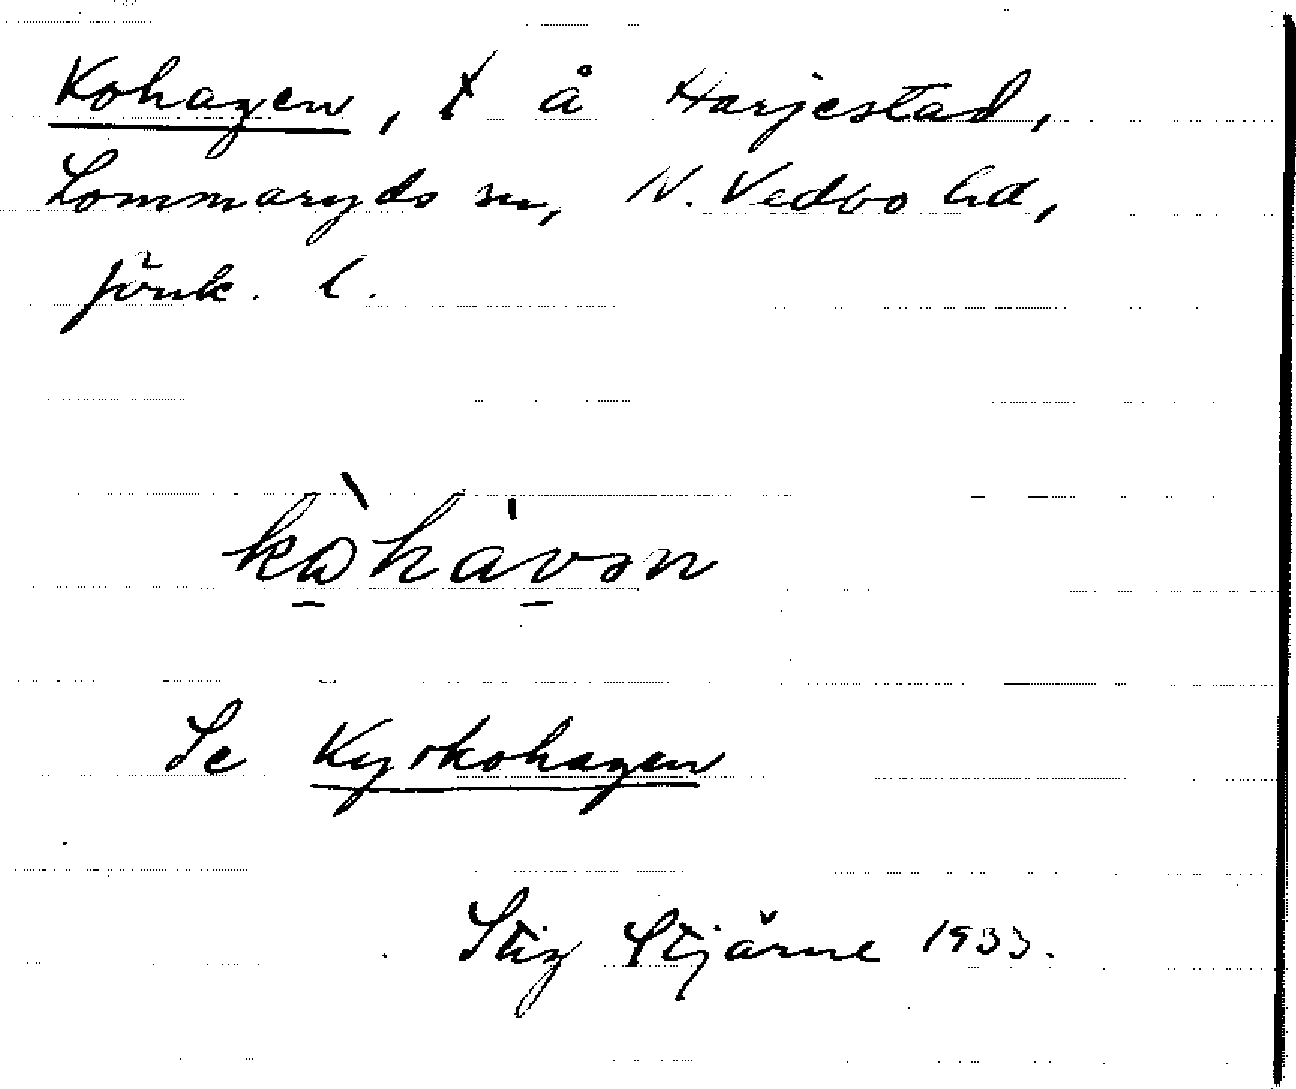 Kohagen, ⵝ å Harjestad,
Lommaryds sn, N. Vedbo hd,
Jönk. l.
kòhàvən
Se Kyrkohagen
Stig Stjärne 1933.